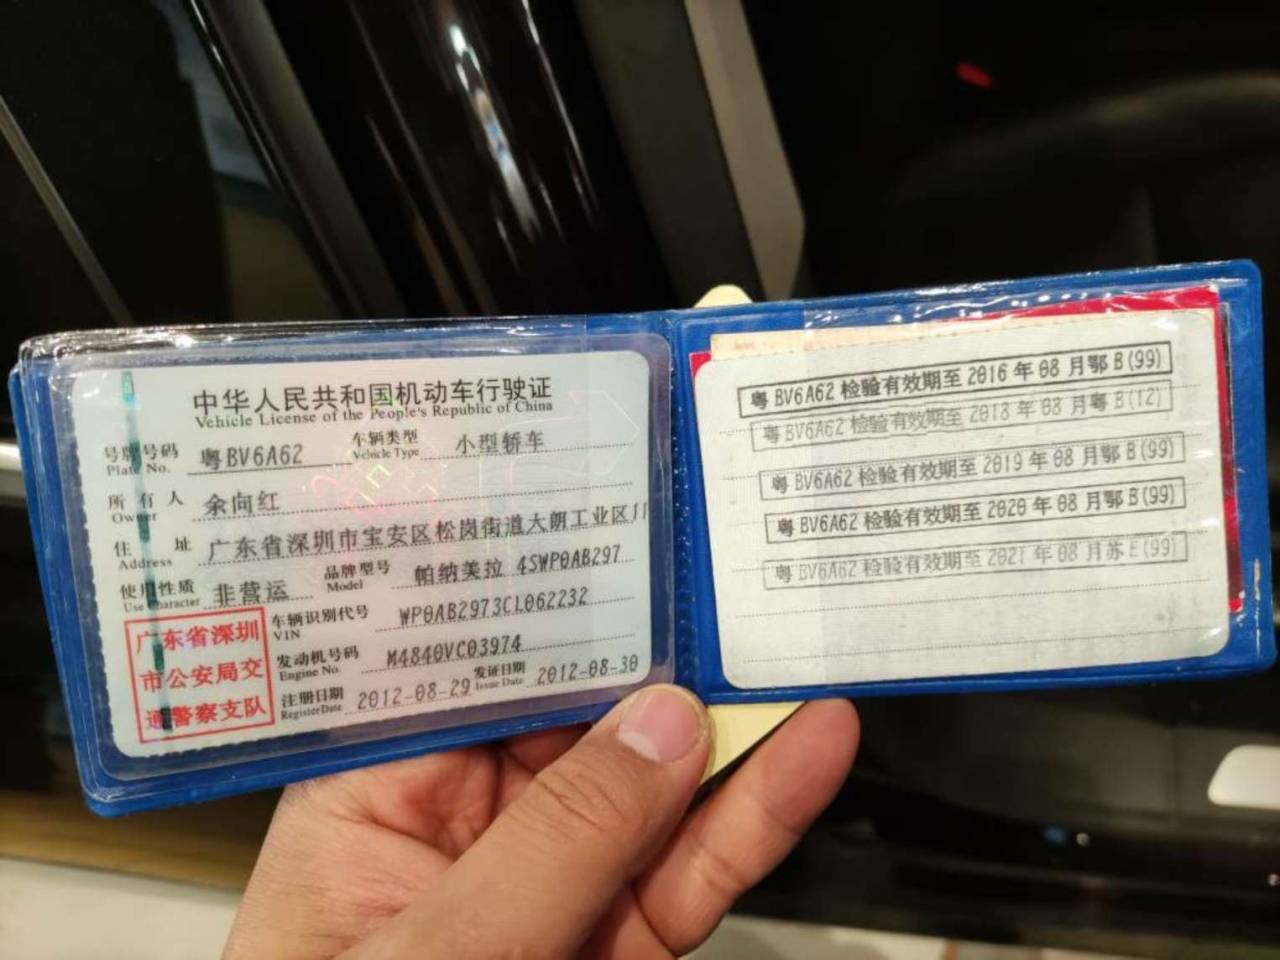 中华人民共和国机动车行驶证
Vehicle License of the People's Republic of China
号牌号码 粤BV6A62 车辆类型 小型轿车
Plate No. Vehicle Type
所有人 余向红
Owner
住址 广东省深圳市宝安区松岗街道大朗工业区11
Address
使用性质 非营运 品牌型号 帕纳美拉 4SWP0AB297
Use Character Model
车辆识别代号 WP0AB2973CL062232
VIN
发动机号码 M4840VC03974
Engine No.
注册日期 2012-08-29 发证日期 2012-08-30
Register Date Issue Date
广东省深圳
市公安局交
通警察支队
粤BV6A62 检验有效期至 2016 年 08 月鄂 B(99)
粤BV6A62 检验有效期至 2018 年 08 月粤 B(12)
粤BV6A62 检验有效期至 2019 年 08 月鄂 B(99)
粤BV6A62 检验有效期至 2020 年 08 月鄂 B(99)
粤BV6A62 检验有效期至 2021 年 08 月苏 E(99)